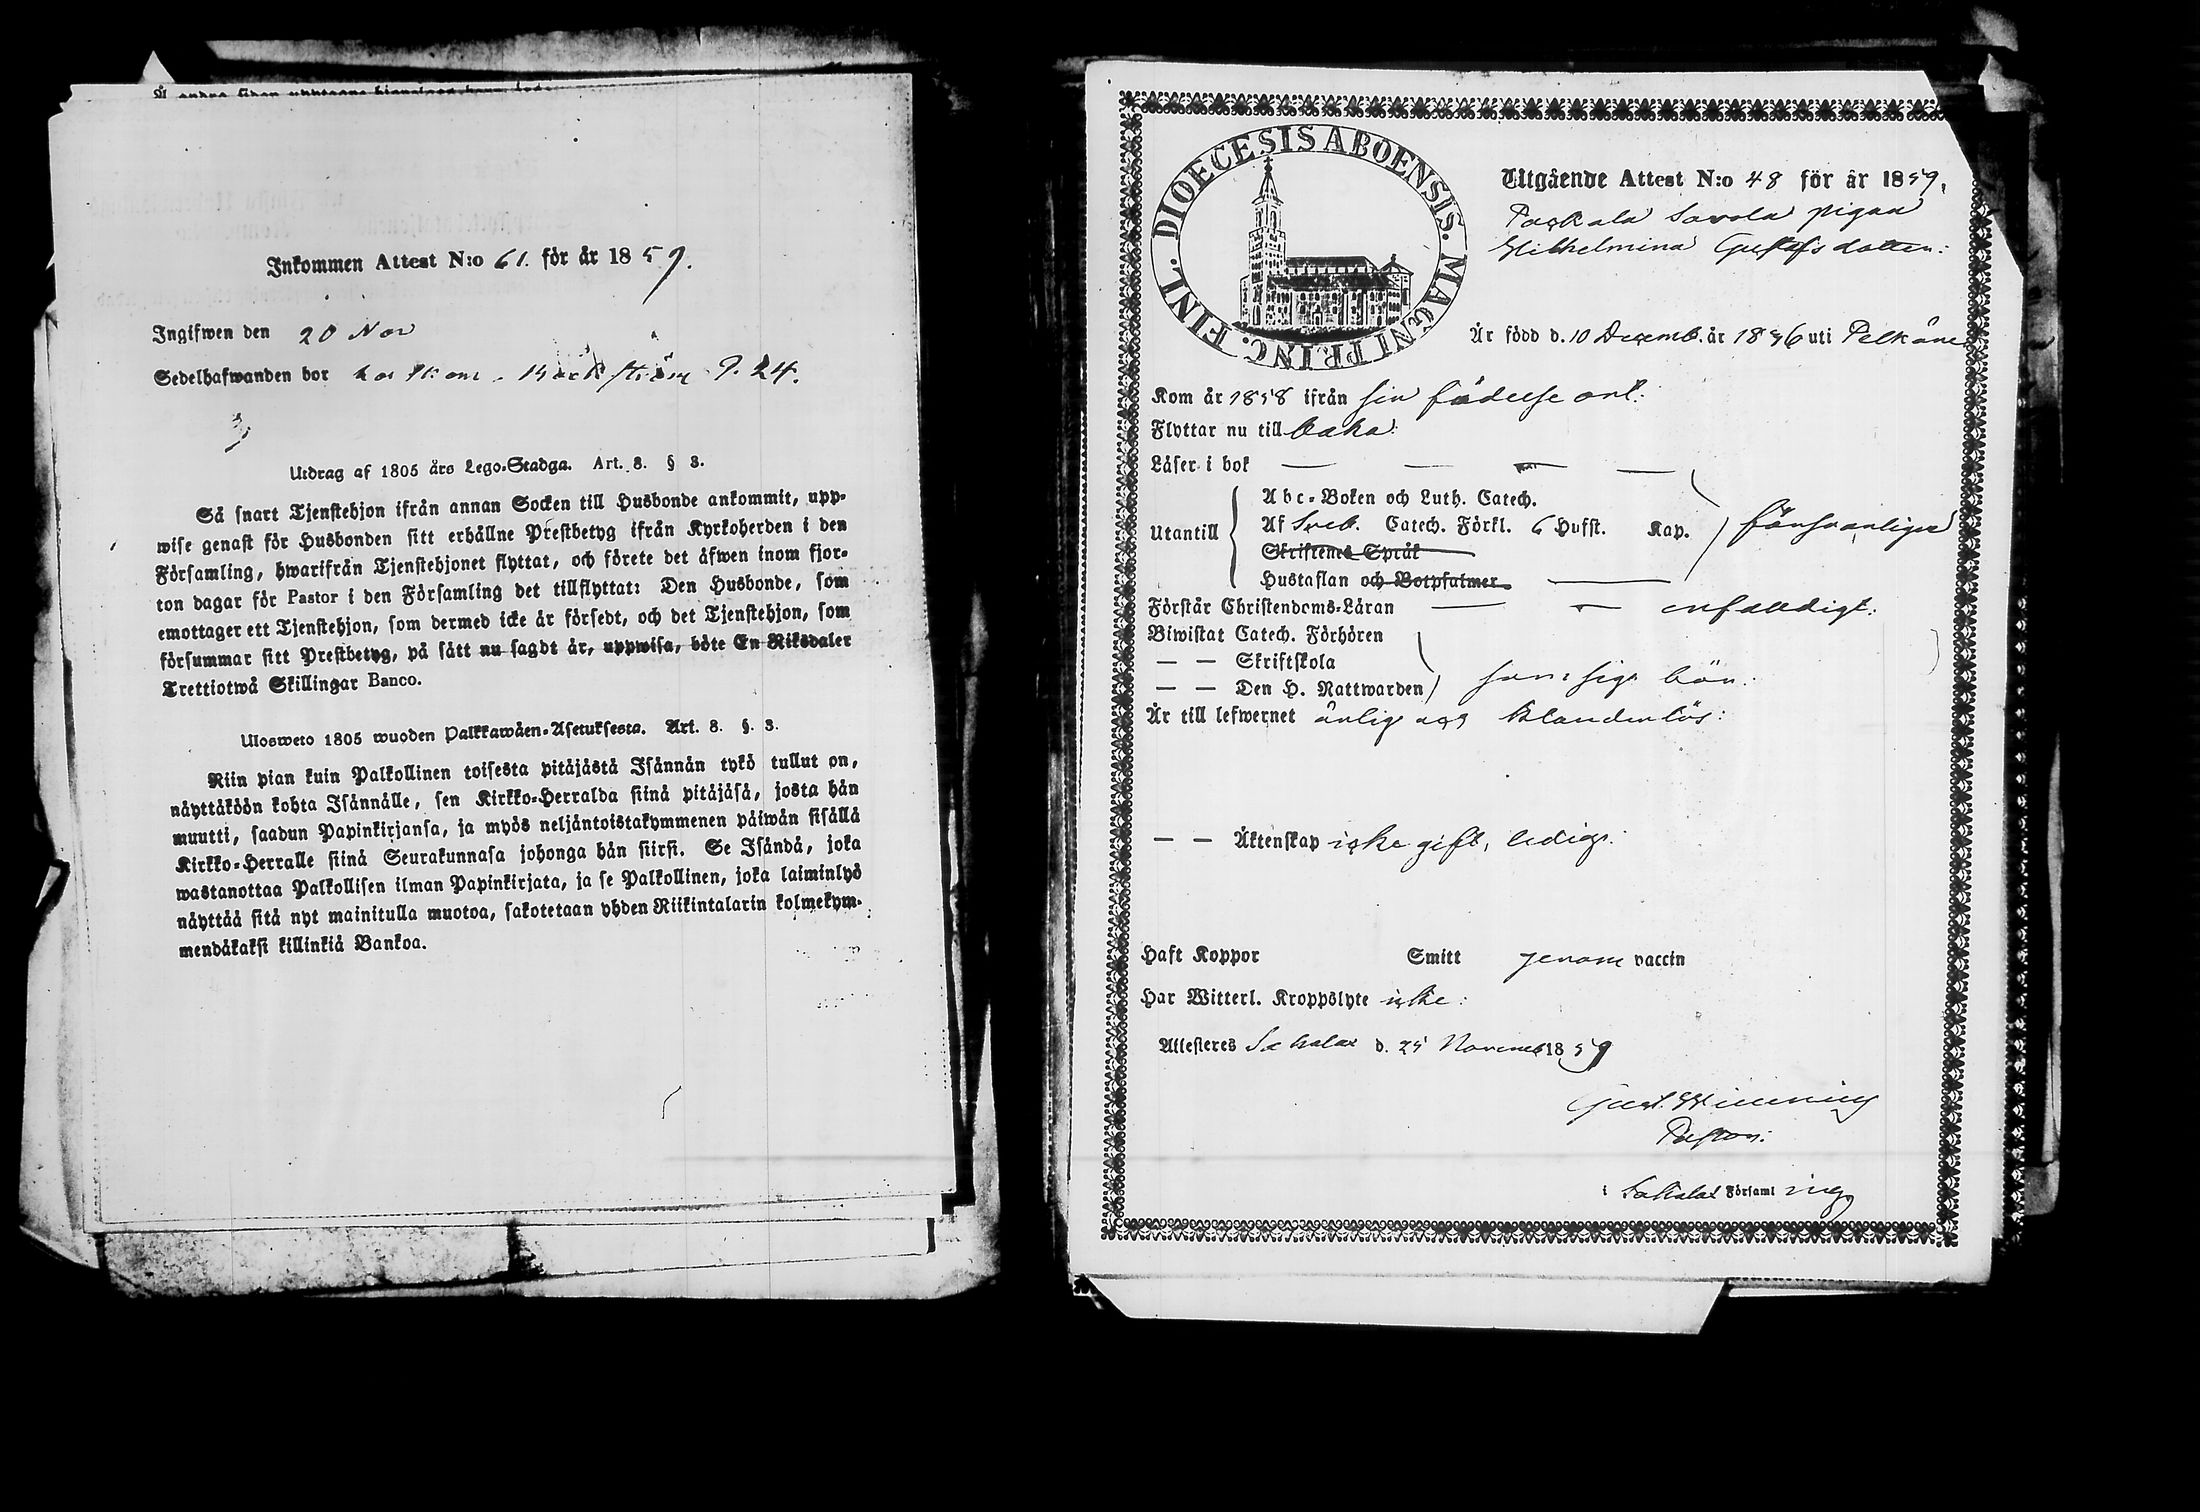 Inkommen Attest N:o 61. för år 1859.
Ingifwen den 20 Nov
Sedelhafwanden bor
Utdrag af 1805 års Lego-Stadga. Art. 8. § 3.
Så snart Tjenstehjon ifrån annan Socken till Husbonde ankommit, upp-
wise genast för Husbonden sitt erhållne Prestbetyg ifrån Kyrkoherden i den
Församling, hwarifrån Tjenstehjonet flyttat, och förete det äfwen inom fjor-
ton dagar för Pastor i den Församling det tillflyttat: Den Husbonde, som
emottager ett Tjenstehjon, som dermed icke är försedt, och det Tjenstehjon, som
försummar sitt Prestbetyg, på sätt nu sagdt är, uppwisa, böte En Riksdaler
Trettiotwå Skillingar Banco.
Ulosweto 1805 wuoden Palkkawäen-Asetuksesta. Art. 8. §. 3.
Niin pian kuin Palkollinen toisesta pitäjästä Isännän tykö tullut on,
näyttäköön kohta Isännälle, sen Kirkko-Herralda siinä pitäjäsä, josta hän
muutti, saadun Papinkirjansa, ja myös neljäntoistakymmenen päiwän sisällä
Kirkko-Herralle siinä Seurakunnasa johonga hän siirsi. Se Isändä, joka
wastanottaa Palkollisen ilman Papinkirjata, ja se Palkollinen, joka laiminlyö
näyttää sitä nyt mainitulla muotoa, sakotetaan yhden Riikintalarin kolmekym-
mendäkaksi killinkiä Bankoa.
DIOECESIS ABOENSIS. MAGNI PRINC. FINL.
Utgående Attest N:o 48 för år 1859.
Savola pigan
Wilhelmina Gustafsdotter:
Är född d. 10 Decemb. år 1836 uti Pelkäne
Kom år 1858 ifrån sin födelse ort:
Flyttar nu till
Läser i bok — — — —
Utantill
Abc-Boken och Luth. Catech.
Af Sveb. Catech. Förkl. 6 Hufst. Kap. försvarligen
Skriftenes Språk
Hustaflan och Botpsalmer
Förstår Christendoms-Läran — — enfaldigt:
Biwistat Catech. Förhören
— — Skriftskola
— — Den H. Nattwarden som sig bör:
Är till lefwernet ärlig och klanderlös:
— — Äktenskap icke gift, ledig:
Haft Koppor Smitt genom vaccin
Har Witterl. Kroppslyte icke:
Attesteres Sahalax d. 25 Novemb 1859
Pastor:
i Sahalax Församling